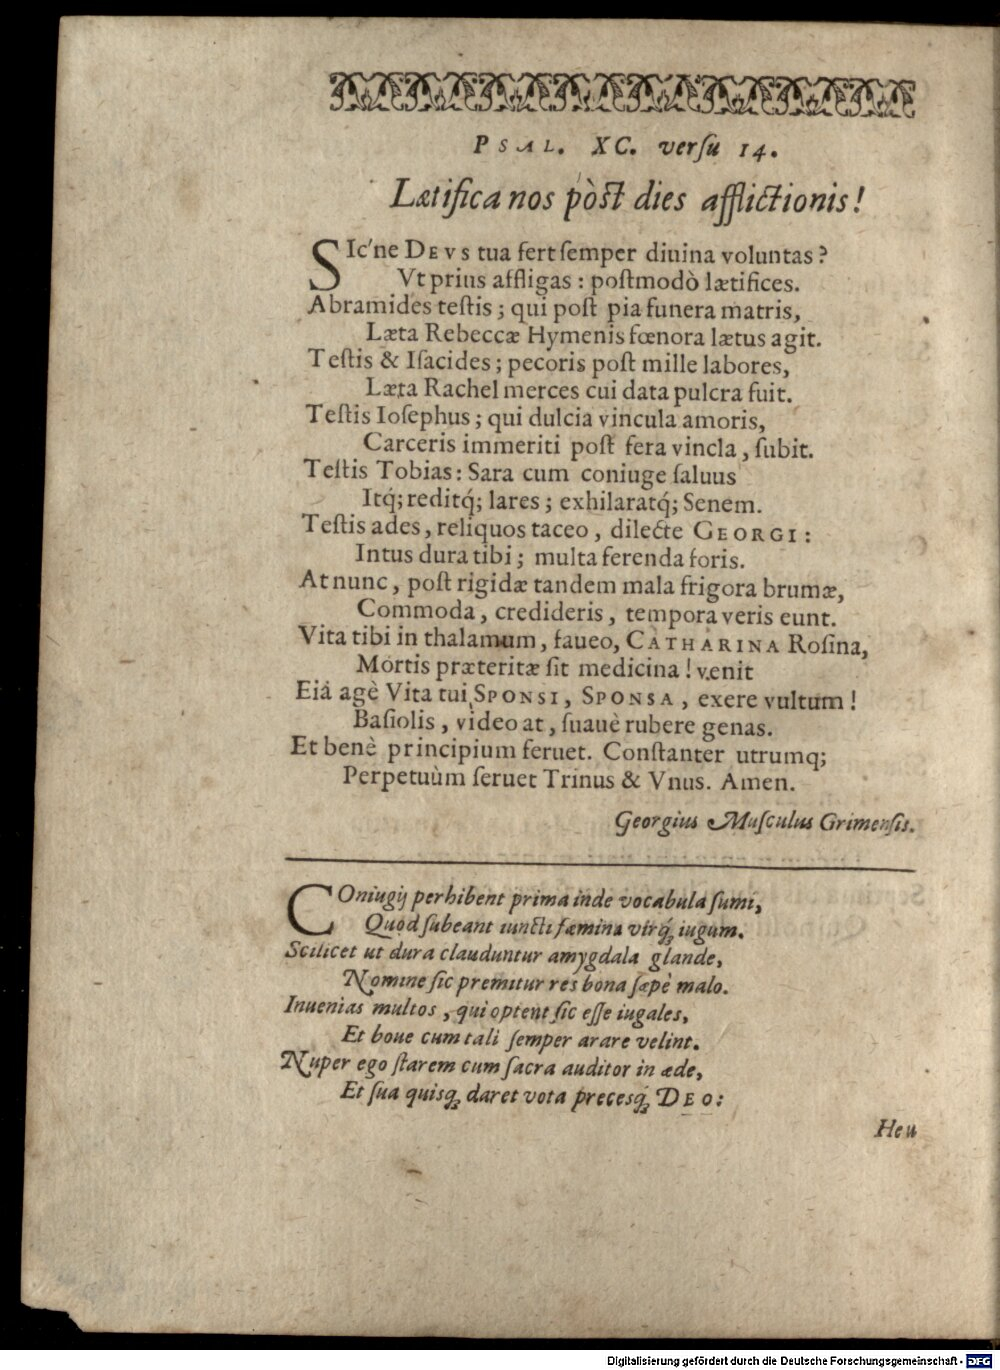 PSAL. XC. verſu 14.
Lætifica nos pòſt dies afflictionis!
SIc'ne DEVS tua fert ſemper diuina voluntas?
Vt prius affligas: poſtmodò lætifices.
Abramides teſtis; qui poſt pia funera matris,
Læta Rebeccæ Hymenis fœnora lætus agit.
Teſtis & Iſacides; pecoris poſt mille labores,
Læta Rachel merces cui data pulcra fuit.
Teſtis Ioſephus; qui dulcia vincula amoris,
Carceris immeriti poſt fera vincla, ſubit.
Teſtis Tobias: Sara cum coniuge ſaluus
Itq́; reditq́; lares; exhilaratq́; Senem.
Teſtis ades, reliquos taceo, dilecte GEORGI:
Intus dura tibi; multa ferenda foris.
At nunc, poſt rigidæ tandem mala frigora brumæ,
Commoda, credideris, tempora veris eunt.
Vita tibi in thalamum, faueo, CATHARINA Roſina,
Mortis præteritæ ſit medicina! venit
Eiâ agè Vita tui SPONSI, SPONSA, exere vultum!
Baſiolis, video at, ſuauè rubere genas.
Et benè principium feruet. Conſtanter utrumq;
Perpetuùm ſeruet Trinus & Vnus. Amen.
Georgius Muſculus Grimenſis.
COniugij perhibent prima inde vocabula ſumi,
Quod ſubeant iuncti fæmina virq́; iugum.
Scilicet ut dura clauduntur amygdala glande,
Nomine ſic premitur res bona ſæpè malo.
Inuenias multos, qui optent ſic eſſe iugales,
Et boue cum tali ſemper arare velint.
Nuper ego ſtarem cum ſacra auditor in æde,
Et ſua quisq; daret vota precesq́; DEO:
Heu
Digitalisierung gefördert durch die Deutsche Forschungsgemeinschaft - DFG